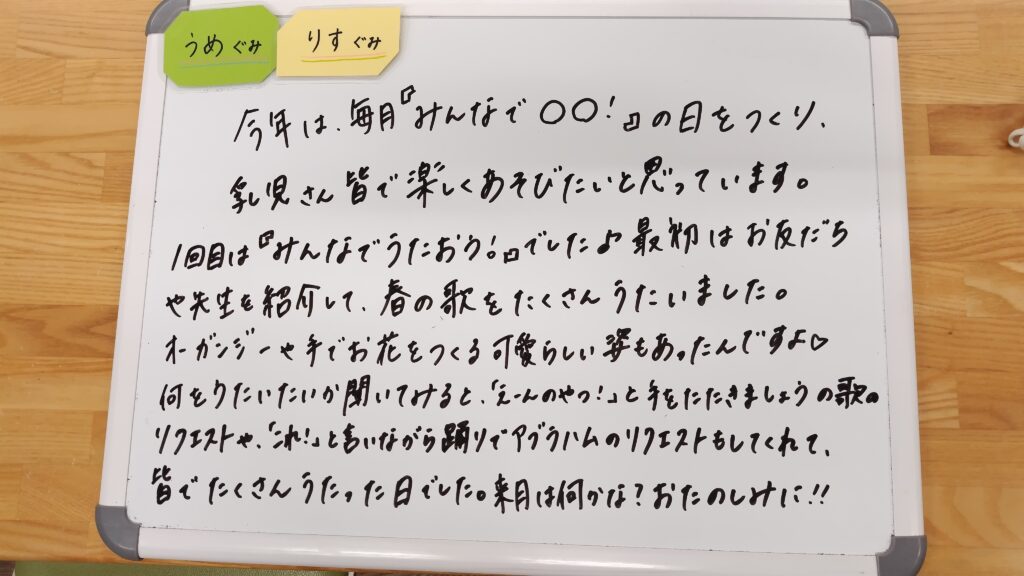 うめぐみ りすぐみ
今年は、毎月『みんなで〇〇!』の日をつくり、
乳児さん皆で楽しくあそびたいと思っています。
1回目は『みんなでうたおう!』でした♪最初はお友だち
や先生を紹介して、春の歌をたくさんうたいました。
オーガンジーや手でお花をつくる可愛らしい姿もあったんですよ♡
何をうたいたいか聞いてみると、「えーんのやつ!」と手をたたきましょうの歌の
リクエストや、「これ!」と言いながら踊りでアブラハムのリクエストもしてくれて、
皆でたくさんうたった日でした。来月は何かな?おたのしみに!!